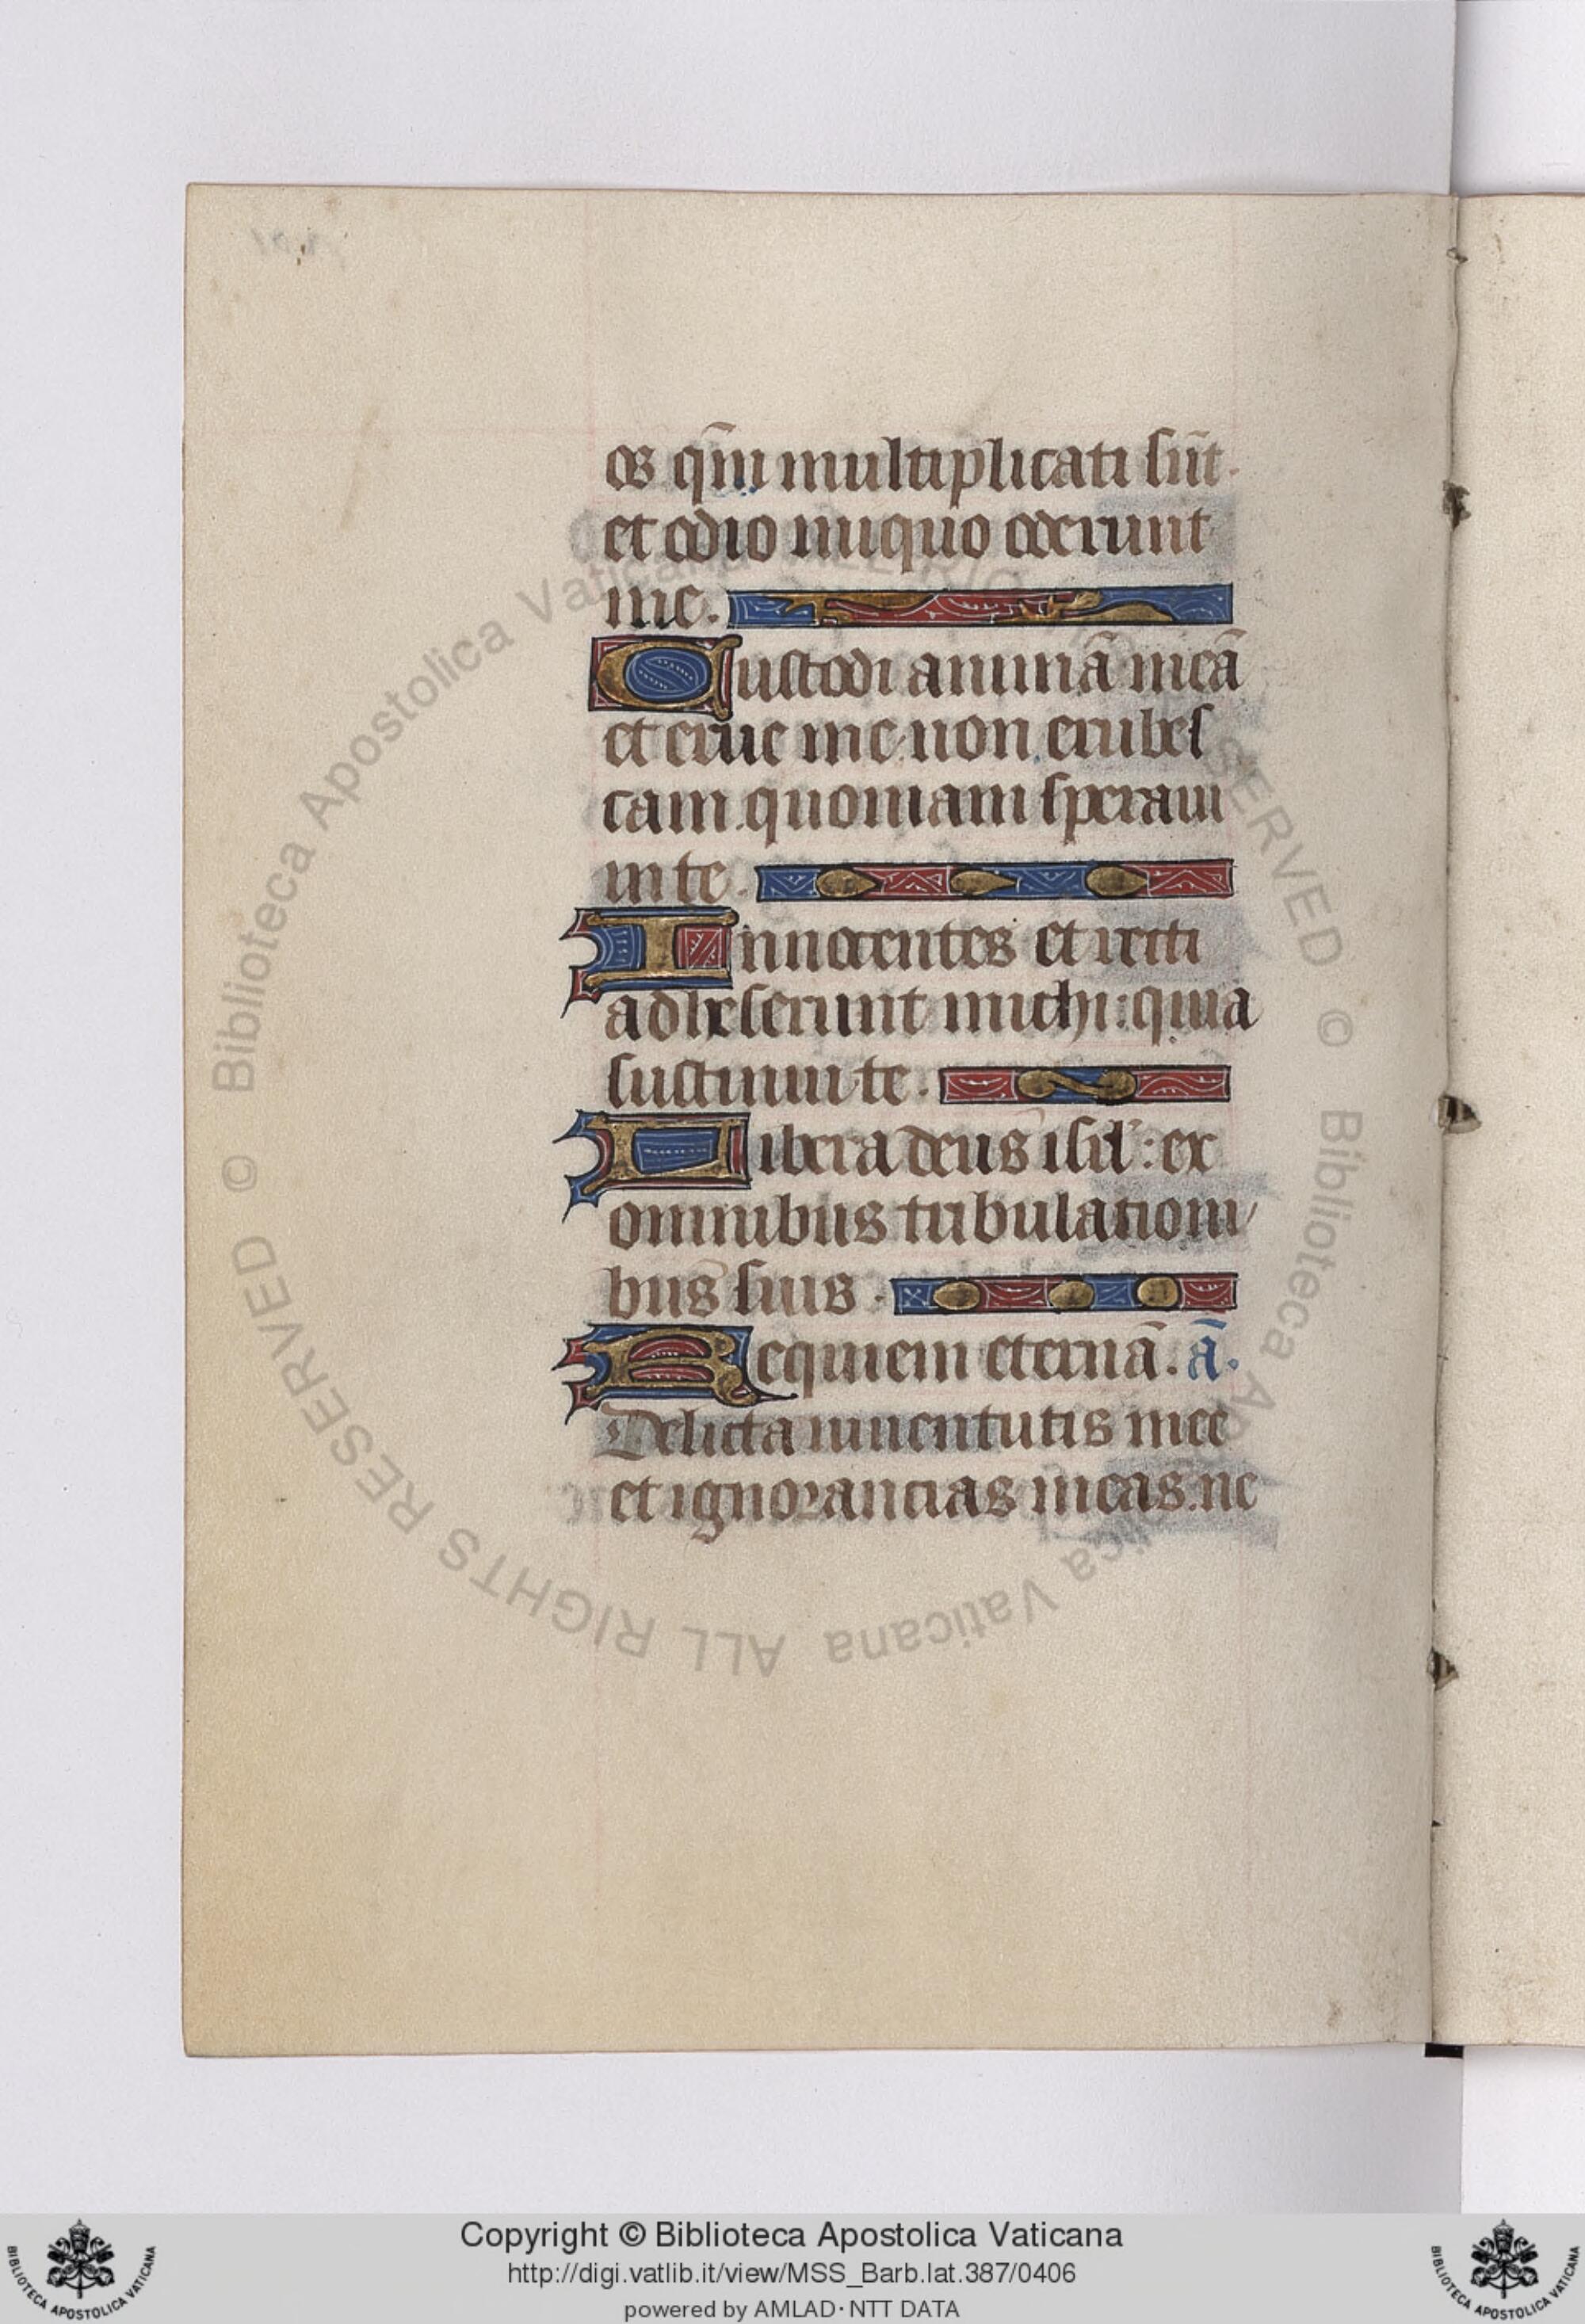 os qm̄ multiplicati sūt.
et odio iniquo oderunt
me.
Custodi animā meā
et erue me non erubes
cam quoniam speraui
in te.
Innocentes et recti
adheserunt michi: quia
sustinui te.
Libera deus isrl̄: ex
omnibus tribulationi
bus suis.
Requiem eternā. ā.
Delicta iuuentutis mee
et ignorancias meas. ne
© Biblioteca Apostolica Vaticana ALL RIGHTS RESERVED © Biblioteca Apostolica Vaticana ALL RIGHTS RESERVED
Copyright © Biblioteca Apostolica Vaticana
http://digi.vatlib.it/view/MSS_Barb.lat.387/0406
powered by AMLAD·NTT DATA
BIBLIOTECA APOSTOLICA VATICANA
BIBLIOTECA APOSTOLICA VATICANA